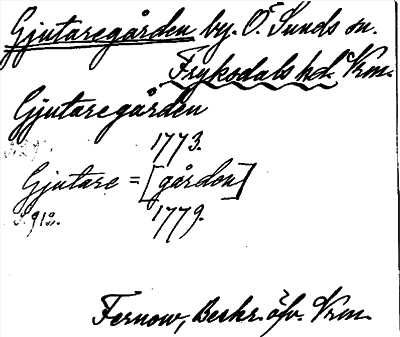 Gjutaregården by. Ö. Sunds sn.
Fryksdals hd. Vrm.
Gjutaregården
1773.
Gjutare = [gården]
1779.
Fernow, Beskr. öfv. Vrm.